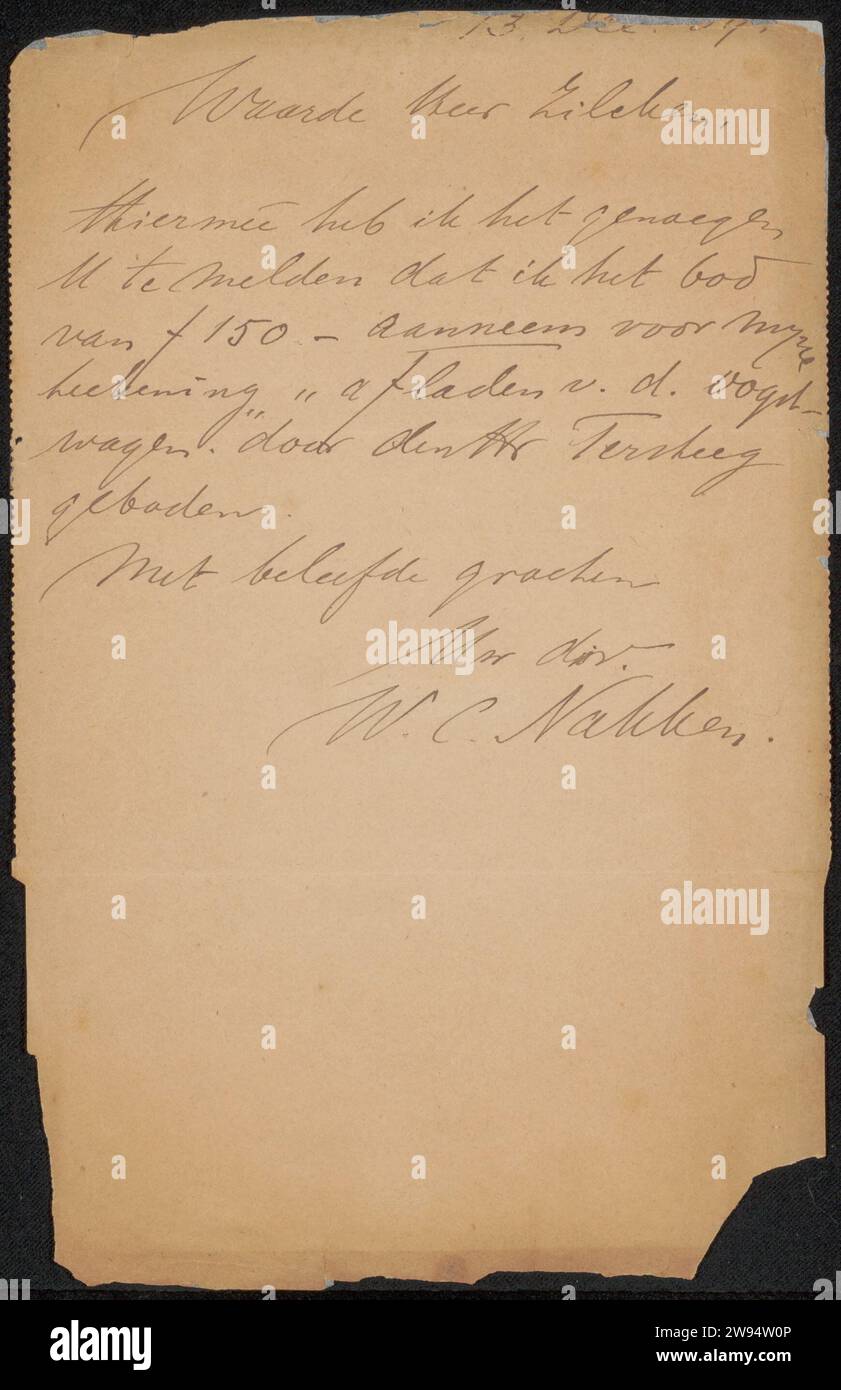 13 Dec.
Waarde Heer Zilcken,
Hiermeê heb ik het genoegen
U te melden dat ik het bod
van f 150 - aanneem voor mijne
teekening „afladen v. d. oogst-
wagen." door den Hr Tersteeg
geboden.
Met beleefde groeten
Uw dv.
W. C. Nakken.
alamy
Image ID: 2W94W0P
www.alamy.com